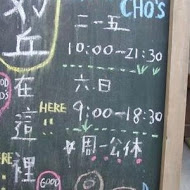 CHO'S
二一五
10:00-21:30
六日
9:00-18:30
周一公休
丘在這裡
HERE
HERE
GOOD
GOOD